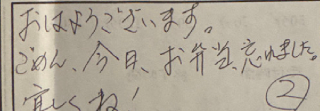 おはようございます。
ごめん、今日、お弁当、忘れました。
宜しくね!
②